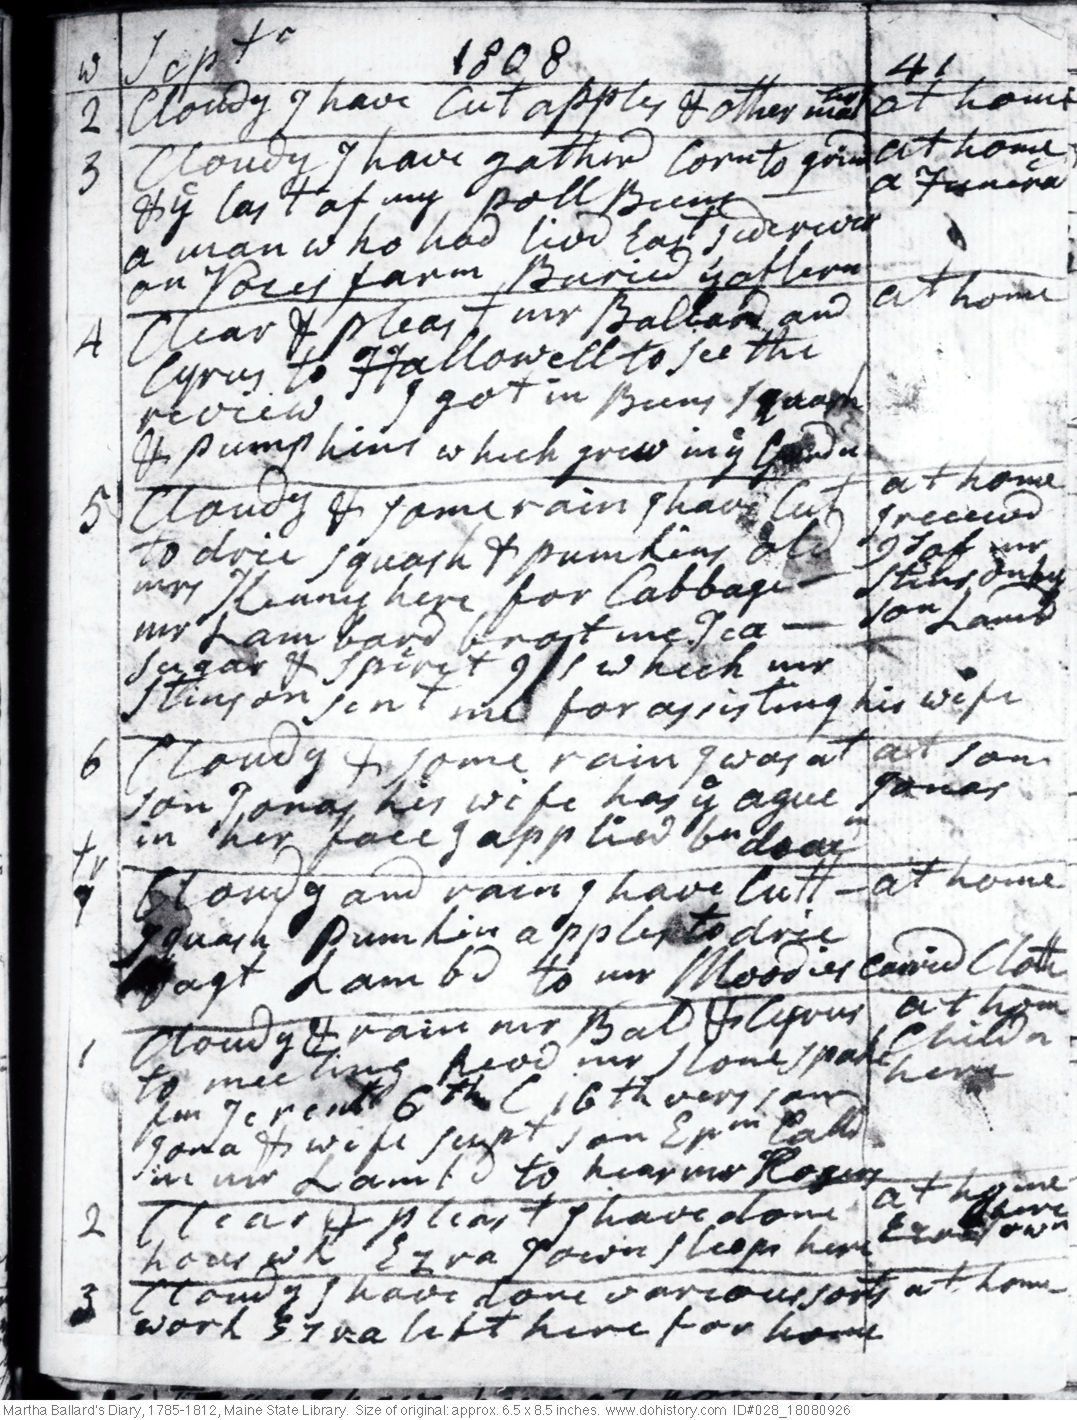 w Septr 1808 41
2 Cloudy I have Cut apples & other matrs at home
3 Cloudy I have gatherd Corn to grind at home
& ye last of my poll Beens a Funeral
a man who had lived East side river
on Voces farm Buried ys aftern
4 Clear & pleast mr Ballard and at home
Cyrus to Hallowell to see the
review I got in Beens squash
& pumpkins which grew in ye Gardn
5 Cloudy & some rain I have Cut at home
to drie squash & pumkins old I receivd
mrs Kenney here for Cabbage 9s of mr
mr Lambard brot me Tea Stinson by
sugar & spirit 9/s which mr son Lambd
Stinson sent me for assisting his wife
6 Cloudy & some rain I was at at son
son Jonas his wife has ye ague Jonas
in her face I applied
7 Cloudy and rain I have Cutt at home
squash pumkin apples to drie
Lambd to mr Moodies caried Cloth
1 Cloudy & rain mr Bal & Cyrus at hom
to meeting heard mr Stone spake Childn
fm Jeremh 6th C 16th vers son here
Jona & wife supt son Epm Calld
in mr Lambd to hear mr Rogers
2 Clear & pleast I have done at home
hous wk Ezra Town sleeps here Ezra Town here
3 Cloudy I have done various sorts at home
work Ezra left here for home
Martha Ballard's Diary, 1785-1812, Maine State Library. Size of original: approx. 6.5 x 8.5 inches. www.dohistory.com ID#028_18080926